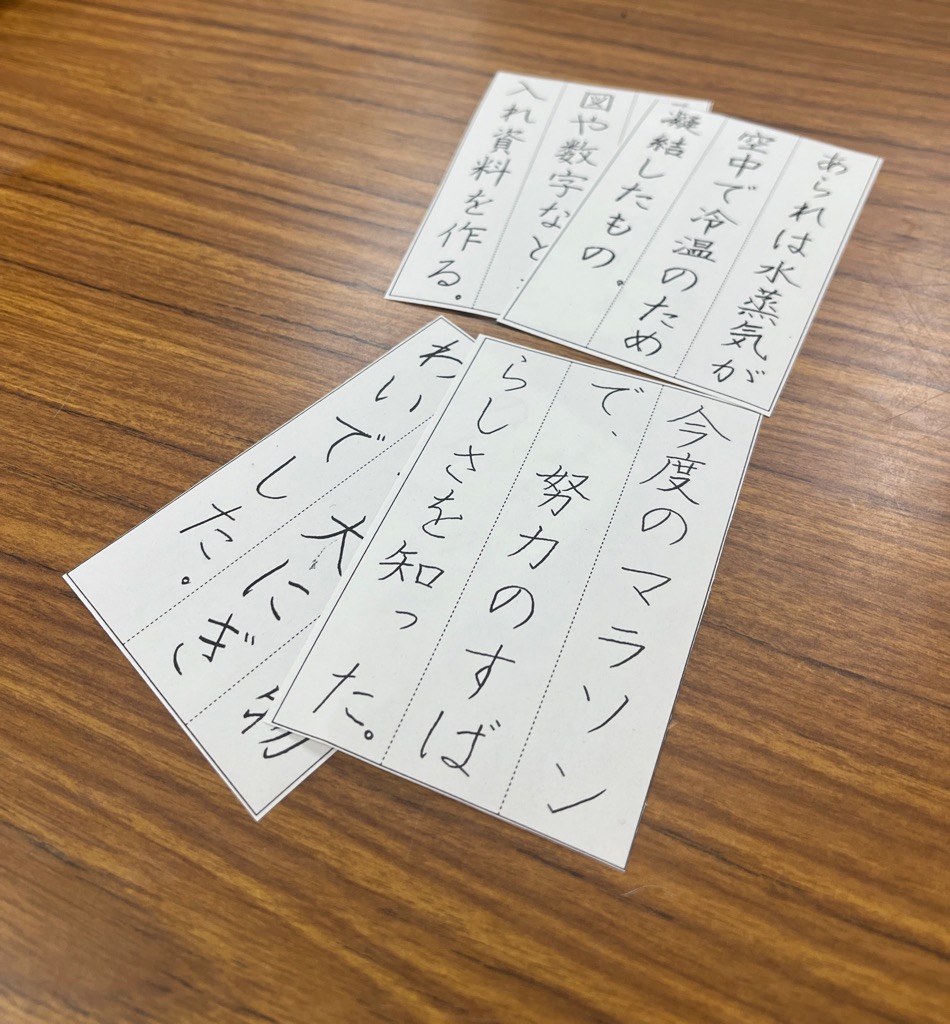 あられは水蒸気が
空中で冷温のため
凝結したもの。
図や数字など
入れ資料を作る。
今度のマラソン
で、努力のすば
らしさを知った。
物
大にぎ
わいでした。